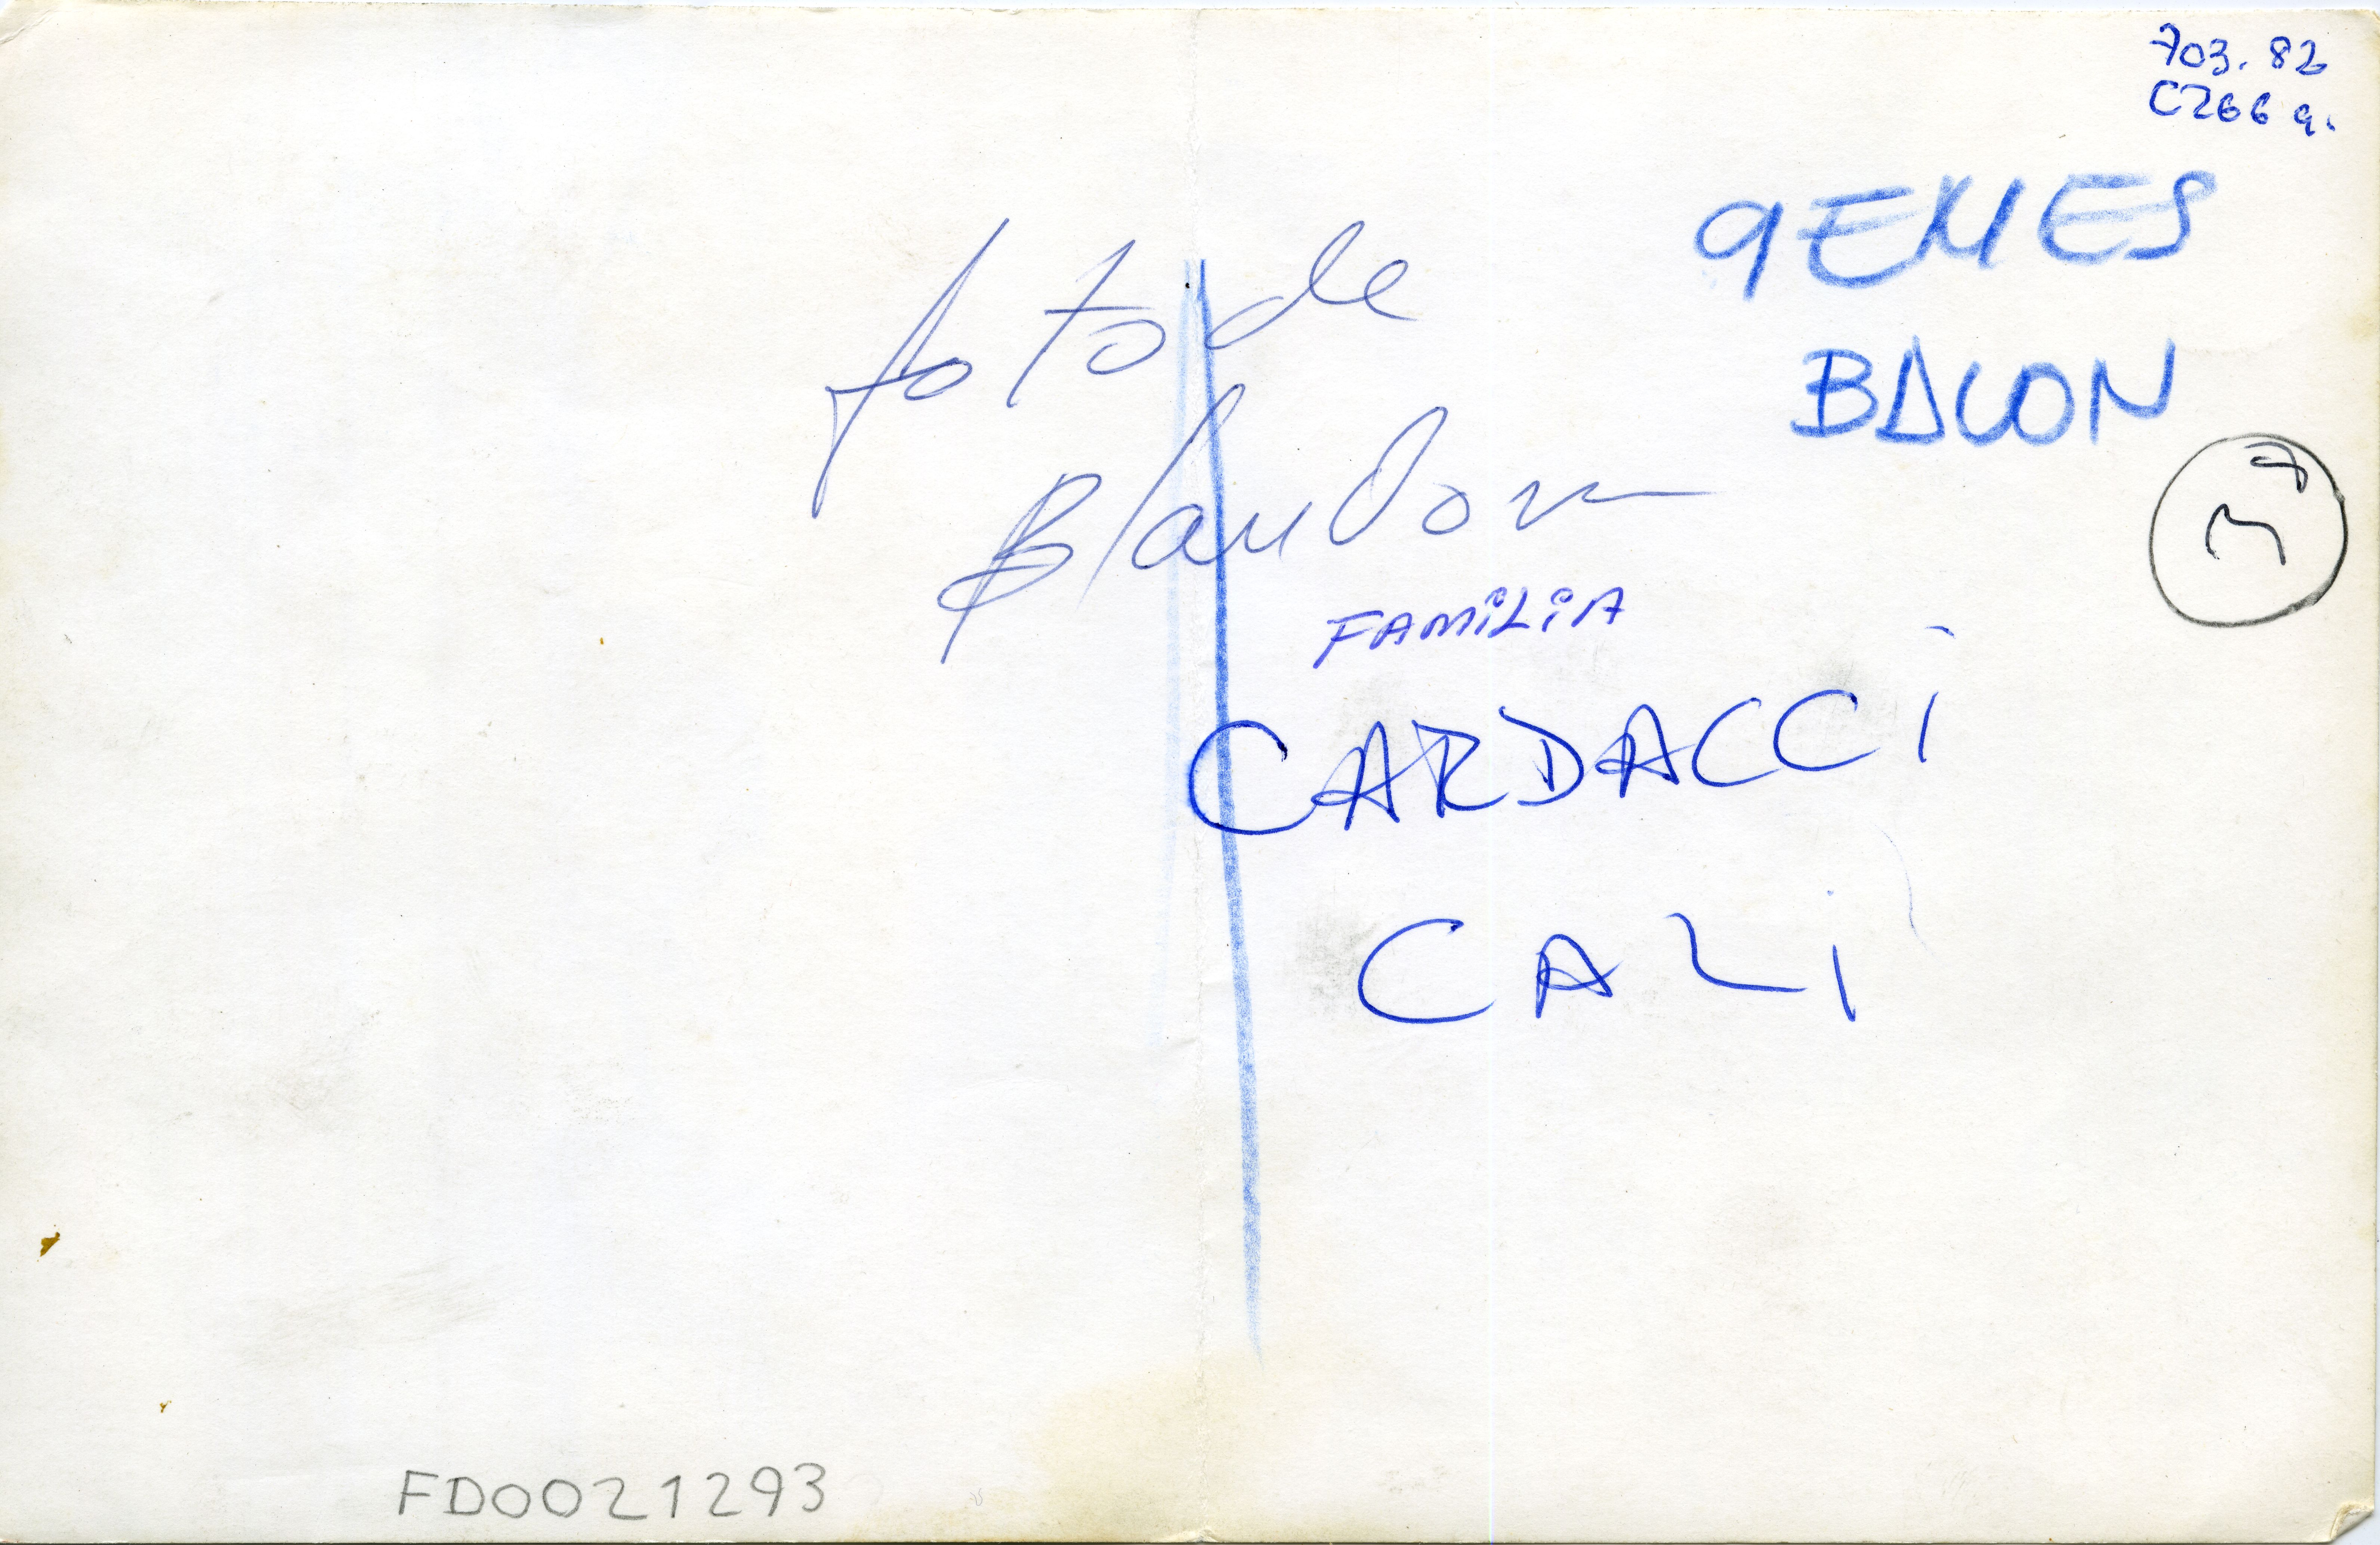 703.82
C266 q.
9EMES
BALON
foto de
Blandon
FAMiLiA
CARDACCi
CALi
FD0021293